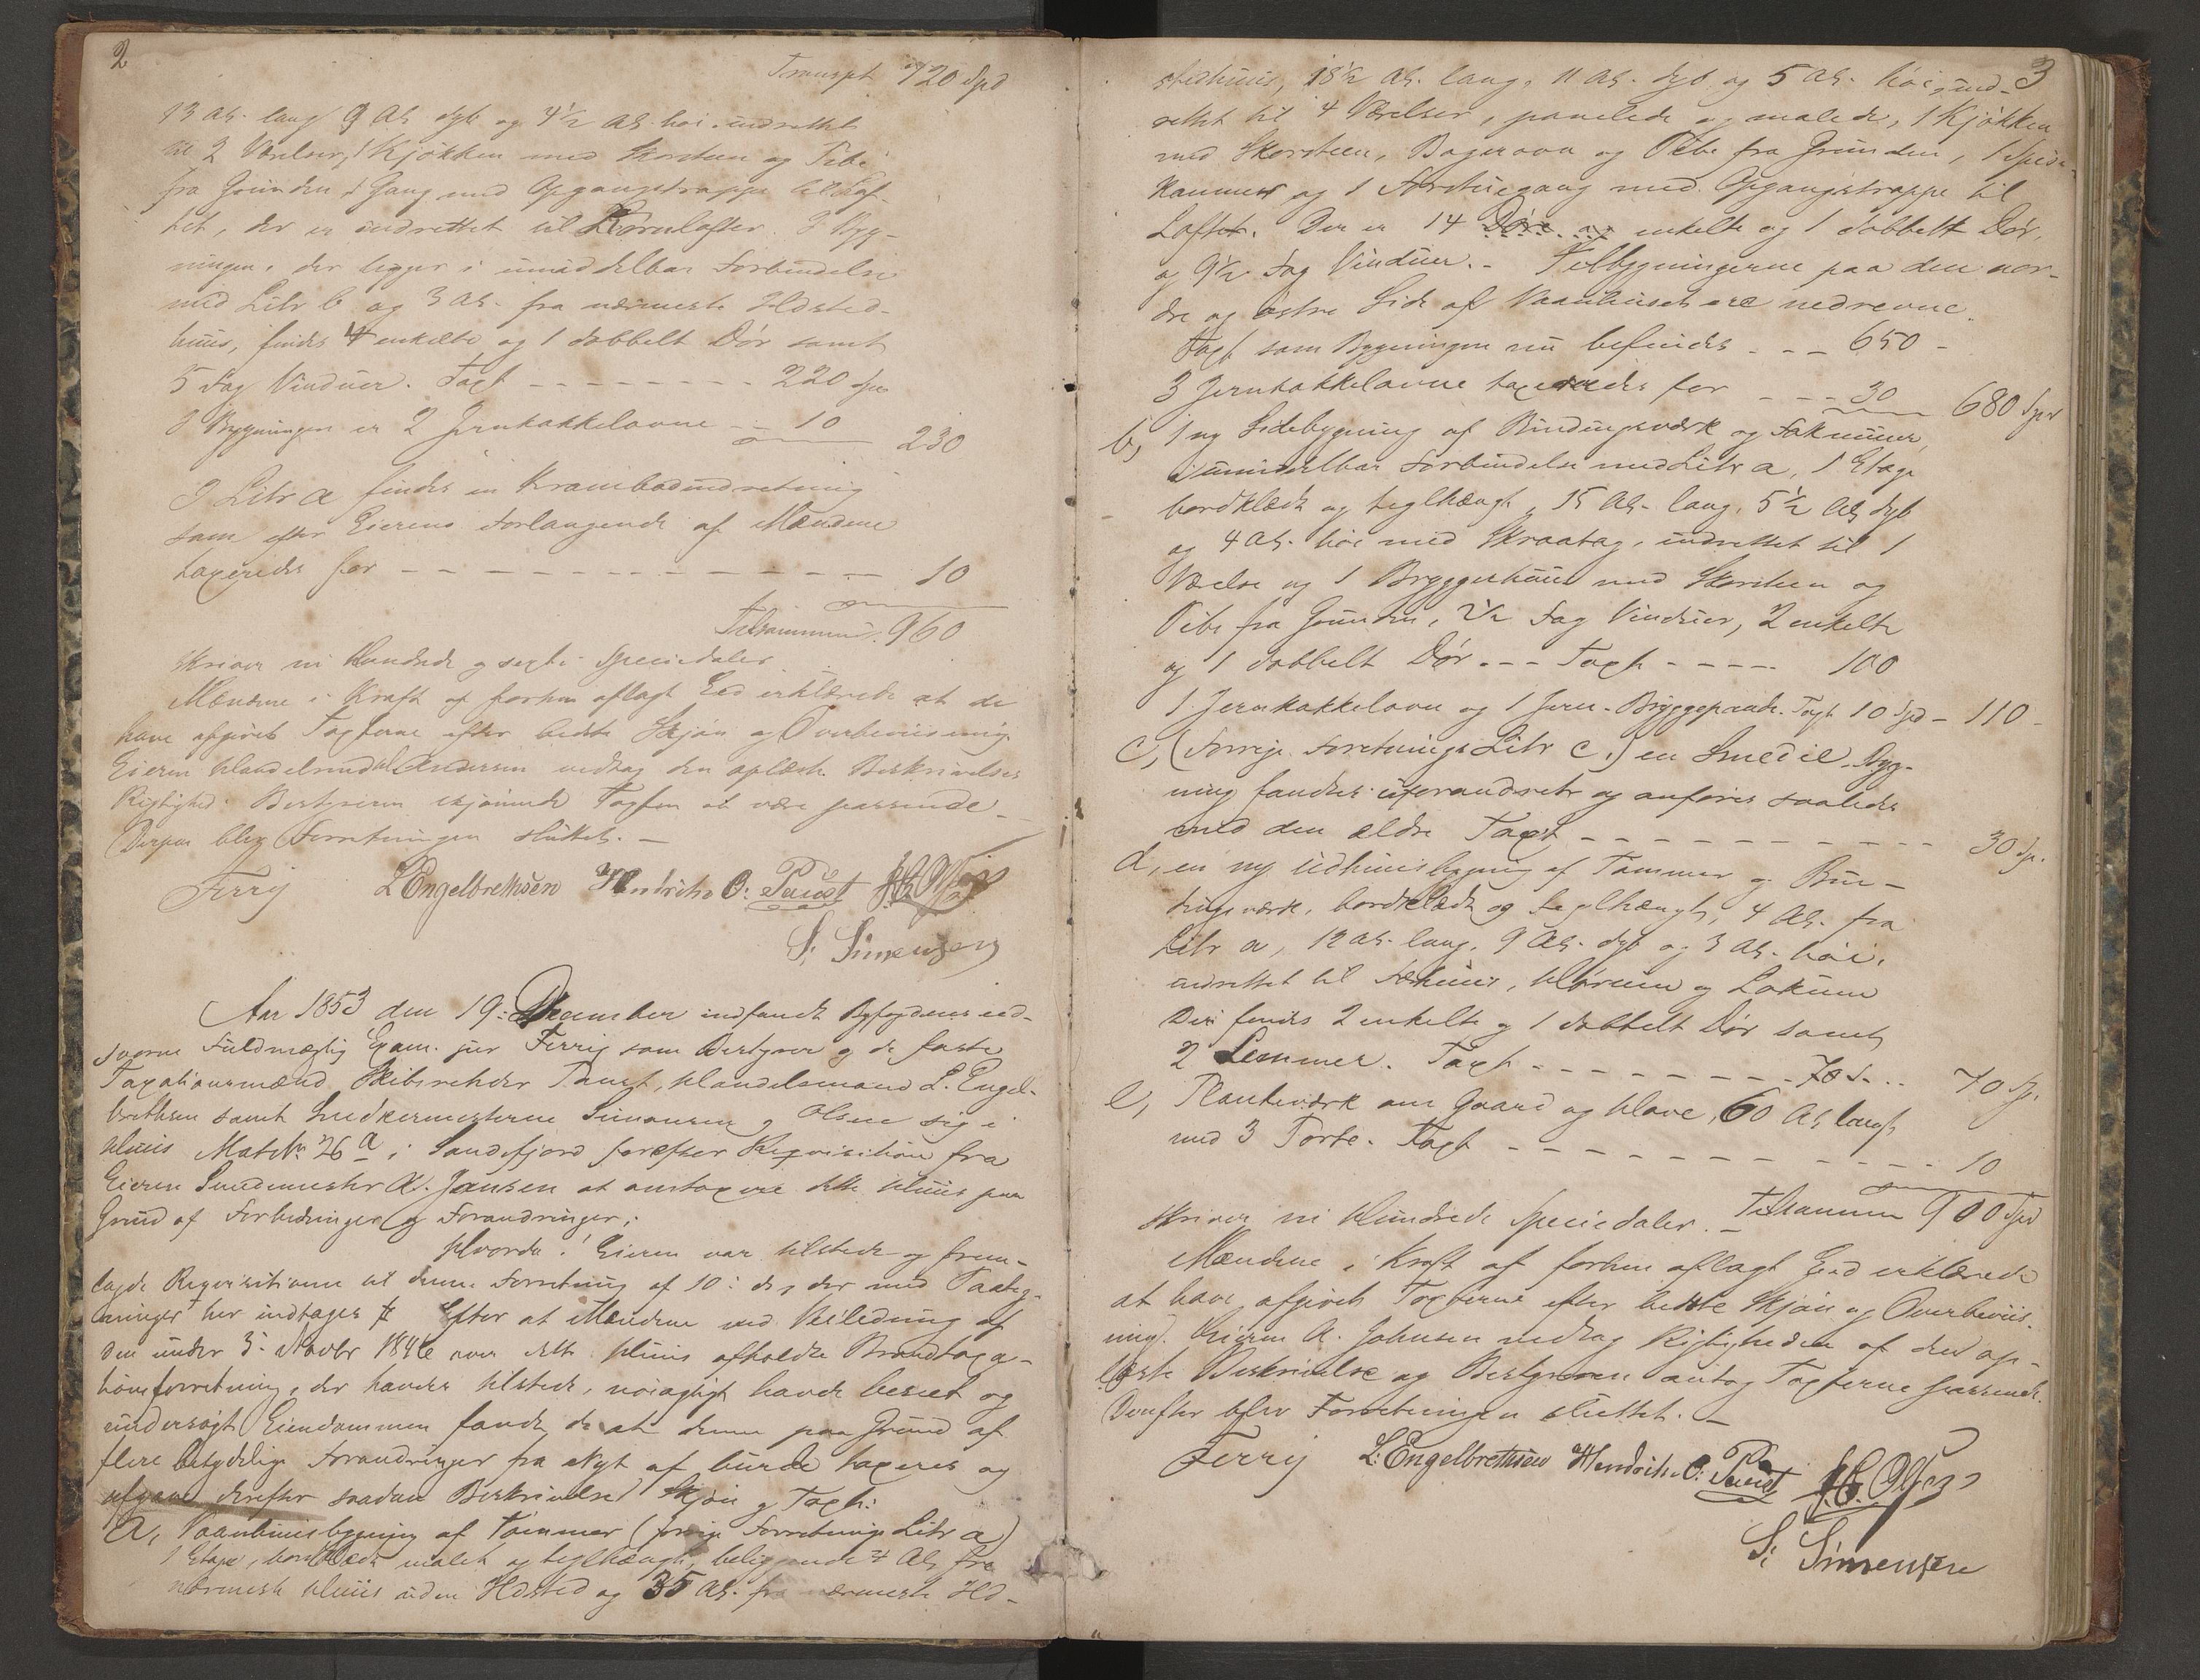 2
Transpt 720 Spd
13 Al. lang 9 Al. dyb og 4½ Al. høi, indrettet
til 2 Værelser, 1 Kjøkken med Skorsteen og Pibe
fra Grunden, 1 Gang med Opgangstrappe til Lof-
tet, der er indrettet til Kornlofter. I Byg-
ningen, der ligger i umiddelbar Forbindelse
med Litr b og 3 Al. fra nærmeste Ildsted-
huus, findes 4 enkelte og 1 dobbelt Dør samt
5 Fag Vinduer. Taxt - - - - - - - - 220 Spd
I Bygningen er 2 Jernkakkelovne - - 10
230
I Litr a findes en Krambodindretning
som efter Eierens Forlangende af Mændene
taxeredes for - - - - - - - - - - - - 10
Tilsammen 960
skriver ni Hundrede og sexti Speciedaler.
Mændene i Kraft af forhen aflagt Eed erklærede at de
have afgivet Taxterne efter bedste Skjøn og Overbeviisning.
Eieren Handelsmd Andersen vedtog den oplæste Beskrivelses
Rigtighed. Bestyreren skjønnede Taxten at være passende -
Derpaa blev Forretningen sluttet. -
Ferrij L Engelbrethsen Hendrich O: Paust H. Olsen
S. Simensen
Aar 1853 den 19: December indfandt Byfogdens ed-
svorne Fuldmægtig Exam. jur Ferrij som Bestyrer og de faste
Taxationsmænd Skibsrheder Paust, Handelsmand L. Engel-
brethsen samt Snedkermesterne Simonsen og Olsen sig i
Huus Matr No 26 a i Sandefjord for efter Reqvisition fra
Eieren Smedemester A. Jansen at omtaxere dette Huus paa
Grund af Forbedringer og Forandringer;
Hvorda! Eieren var tilstede og frem-
lagde Reqvisitionen til denne Forretning af 10: ds, der med Paateg-
ninger her indtages # Efter at Mændene ved Veiledning af
den under 3: Novbr 1846 over dette Huus afholdte Brandtaxa-
tionsforretning, der havdes tilstede, nøiagtigt havde beseet og
undersøgt Eiendommen fandt de at denne paa Grund af
flere betydelige Forandringer fra Nyt af burde taxeres og
afgave derefter saadan Beskrivelse, Skjøn og Taxt:
A, Vaanhuusbygning af Tømmer (forrige Forretnings Litr a)
1 Etage, bordklædt malet og teglhængt, beliggende 4 Al. fra
nærmeste Huus uden Ildsted og 35 Al. fra nærmeste Ild-
3
stedhuus, 18½ Al. lang, 11 Al. dyb og 5 Al. høi, ind-
rettet til 4 Værelser, panelede og malede, 1 Kjøkken
med Skorsteen, Bagerovn og Pibe fra Grunden, 1 Spise-
kammer og 1 Forstuegang med Opgangstrappe til
Loftet. Der er 14 Døre og enkelte og 1 dobbelt Dør,
og 9½ Fag Vinduer. - Tilbygningerne paa den nor-
dre og østre Side af Vaanhuset ere nedrevne.
Taxt som Bygningen nu befindes - - - 650 -
3 Jernkakkelovne taxeredes for - - - 30
680 Spd
b, 1 ny Sidebygning af Bindingsværk og Fakmuur,
i umiddelbar Forbindelse med Litr a, 1 Etage
bordklædt og teglhængt, 15 Al. lang, 5½ Al. dyb
og 4 Al. høi med Skraatag, indrettet til 1
Værelse og 1 Bryggerhuus med Skorsteen og
Pibe fra Grunden, 2½ Fag Vinduer, 2 enkelte
og 1 dobbelt Dør. - - Taxt - - - - - 100
1 Jernkakkelovn og 1 Jern-Bryggepande. Taxt 10 Spd - 110 -
C, (Forrige Forretnings Litr C.) en Smedie-Byg-
ning fandtes uforandret og anføres saaledes
med den ældre Taxt - - - - - - - - - - 30 Sp.
d, en ny Udhuusbygning af Tømmer og Bin-
dingsværk, bordklædt og teglhængt, 4 Al. fra
Litr a, 12 Al. lang, 9 Al. dyb og 3 Al. høi,
indrettet til Fæhuus, Hørum og Lokum
Der findes 2 enkelte og 1 dobbelt Dør samt
2 Lemmer. Taxt - - - - - - - - 70 S. . . 70 Sp.
e, Plankeværk om Gaard og Have, 60 Al. langt
med 3 Porte. Taxt - - - - - - - - - - - - 10
Tilsammen 900 Spd
skriver ni Hundrede Speciedaler. -
Mændene i Kraft af forhen aflagt Eed erklærede
at have afgivet Taxterne efter bedste Skjøn og Overbeviis-
ning. Eieren A. Johnsen vedtog Rigtigheden af den op-
læste Beskrivelse og Bestyreren antog Taxterne passende.
Derefter blev Forretningen sluttet. -
Ferrij L: Engelbrethsen Hendrich O: Paust H. Olsen
S: Simensen